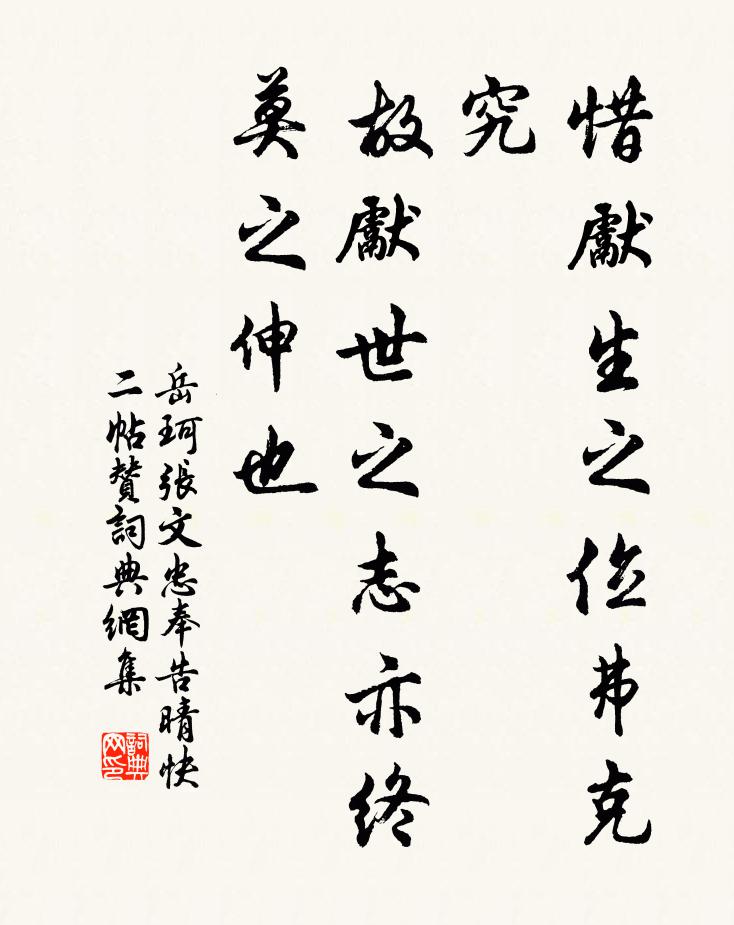 惜獻生之位弗克
究
故獻世之志亦終
莫之伸也
岳珂張文忠奉告晴快
二帖贊詞典網集
詞典
网印